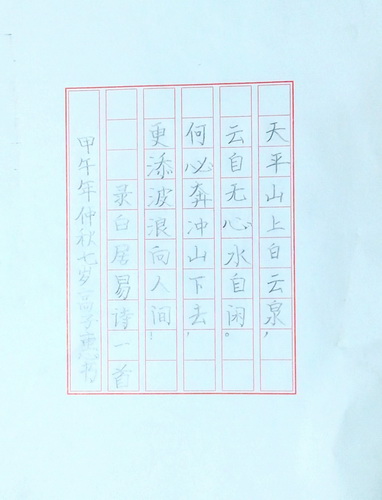 天平山上白云泉,
云自无心水自闲。
何必奔冲山下去,
更添波浪向人间!
录白居易诗一首
甲午年仲秋七岁高子惠书